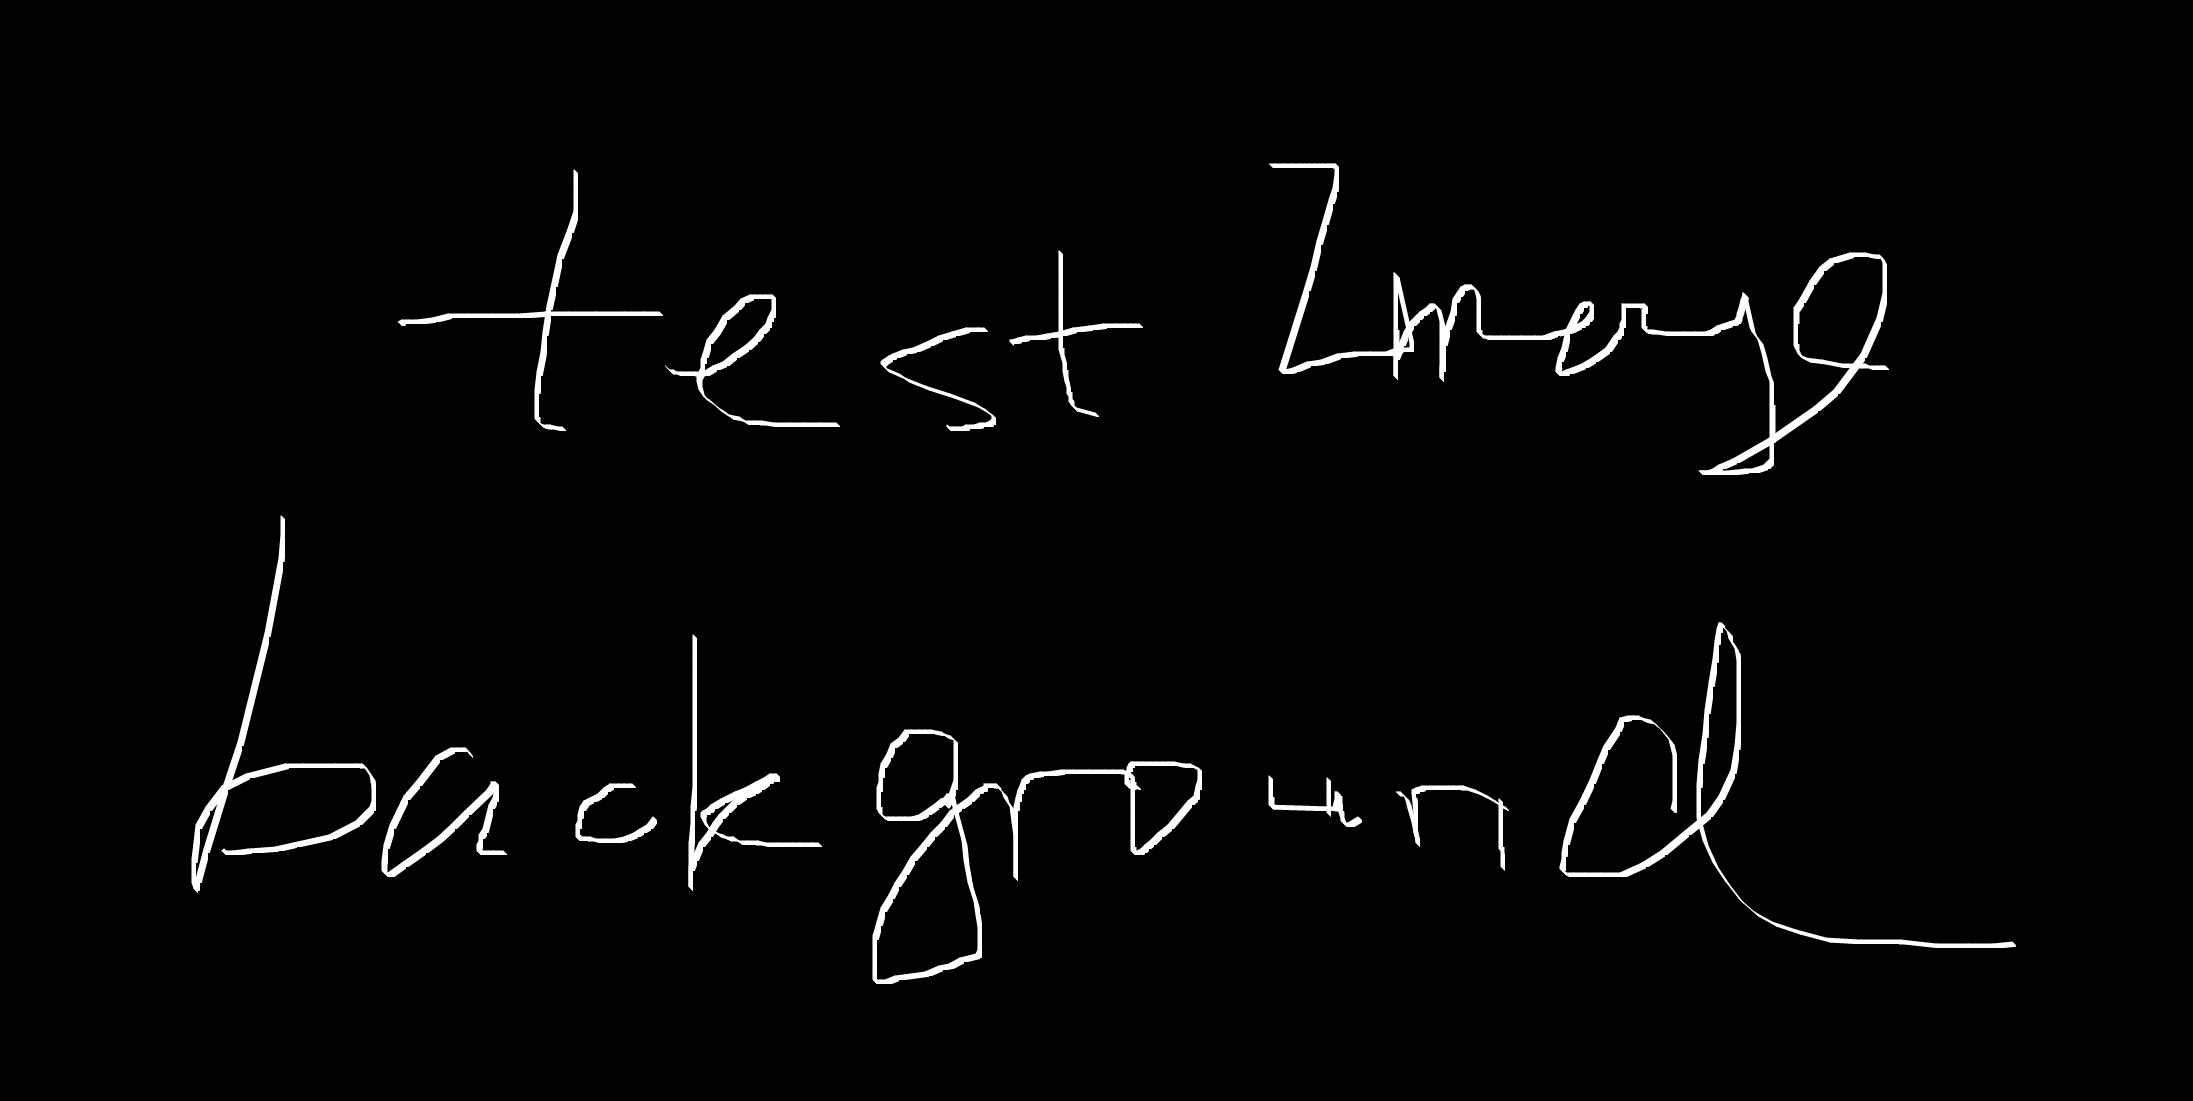 test Image
background